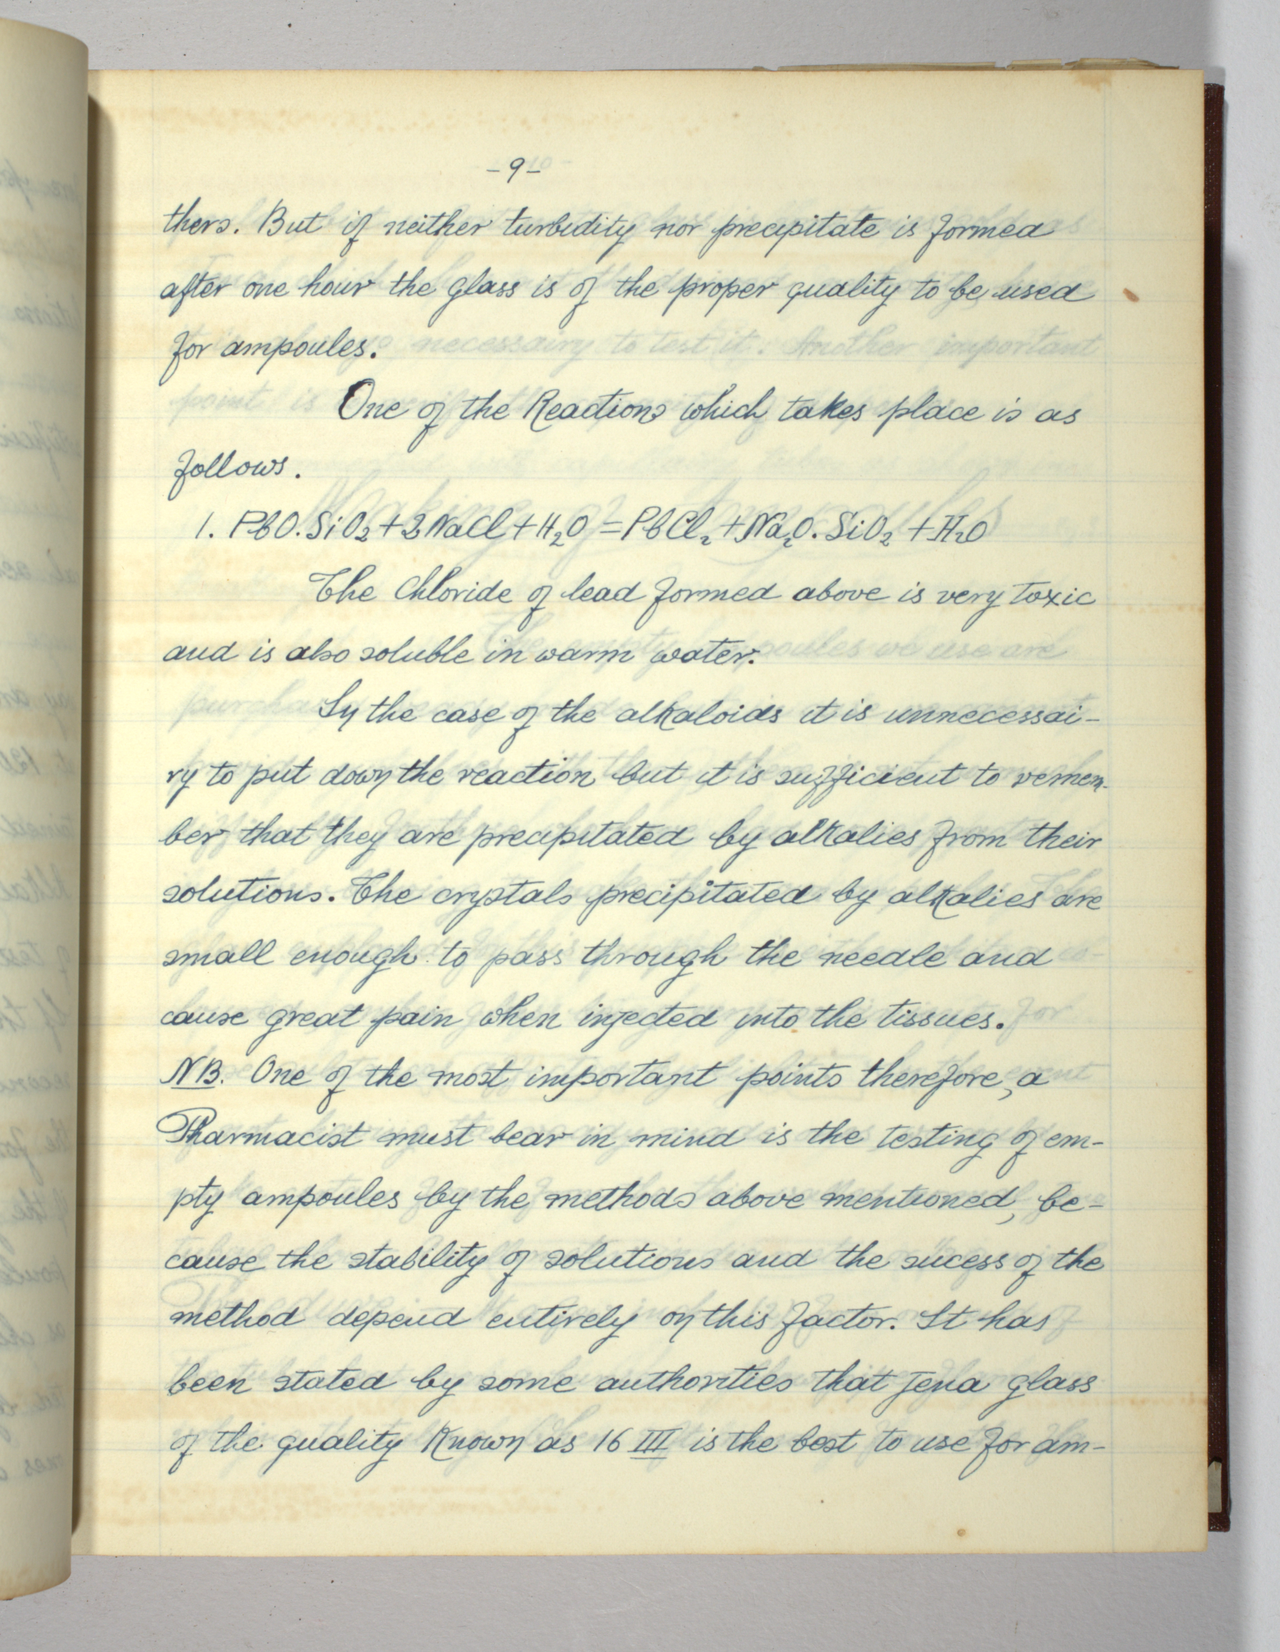 -9-
thers. But if neither turbidity nor precipitate is formed
after one hour the glass is of the proper quality to be used
for ampoules.
One of the Reactions which takes place is as
follows.
1. PbO.SiO₂+2NaCl+H₂O=PbCl₂+Na₂O.SiO₂+H₂O
The Chloride of lead formed above is very toxic
and is also soluble in warm water.
In the case of the alkaloids it is unnecessai-
ry to put down the reaction but it is sufficient to remem-
ber that they are precipitated by alkalies from their
solutions. The crystals precipitated by alkalies are
small enough to pass through the needle and
cause great pain when injected into the tissues.
NB. One of the most important points therefore, a
Pharmacist must bear in mind is the testing of em-
pty ampoules by the methods above mentioned, be-
cause the stability of solutions and the sucess of the
method depend entirely on this factor. It has
been stated by some authorities that Jena glass
of the quality Known as 16 III is the best to use for am-